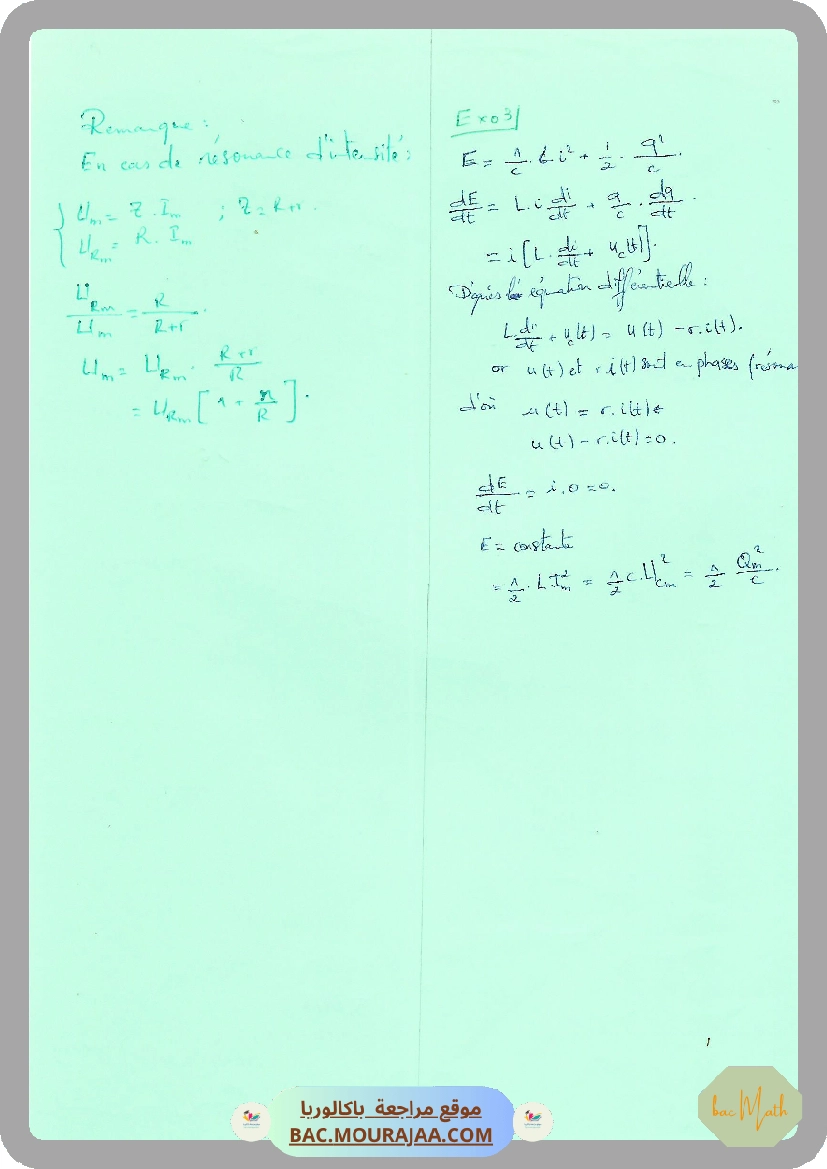 Remarque :
En cas de résonance d'intensité :
Um = Z . Im ; Z = R+r .
URm = R . Im
URm/Um = R/(R+r) .
Um = URm . (R+r)/R
= URm [ 1 + r/R ] .
Exo3
E = 1/c . L i² + 1/2 . q²/c .
dE/dt = L . i di/dt + q/c . dq/dt .
= i [ L . di/dt + uc(t) ] .
D'après le équation différentielle :
L . di/dt + uc(t) = u(t) - r.i(t) .
or u(t) et r.i(t) sont en phases (résona
d'où u(t) = r.i(t)
u(t) - r.i(t) = 0 .
dE/dt = i . 0 = 0 .
E = constante
= 1/2 . L Im² = 1/2 c . Ucm² = 1/2 Qm²/c .
1
bac Math
موقع مراجعة باكالوريا
BAC.MOURAJAA.COM